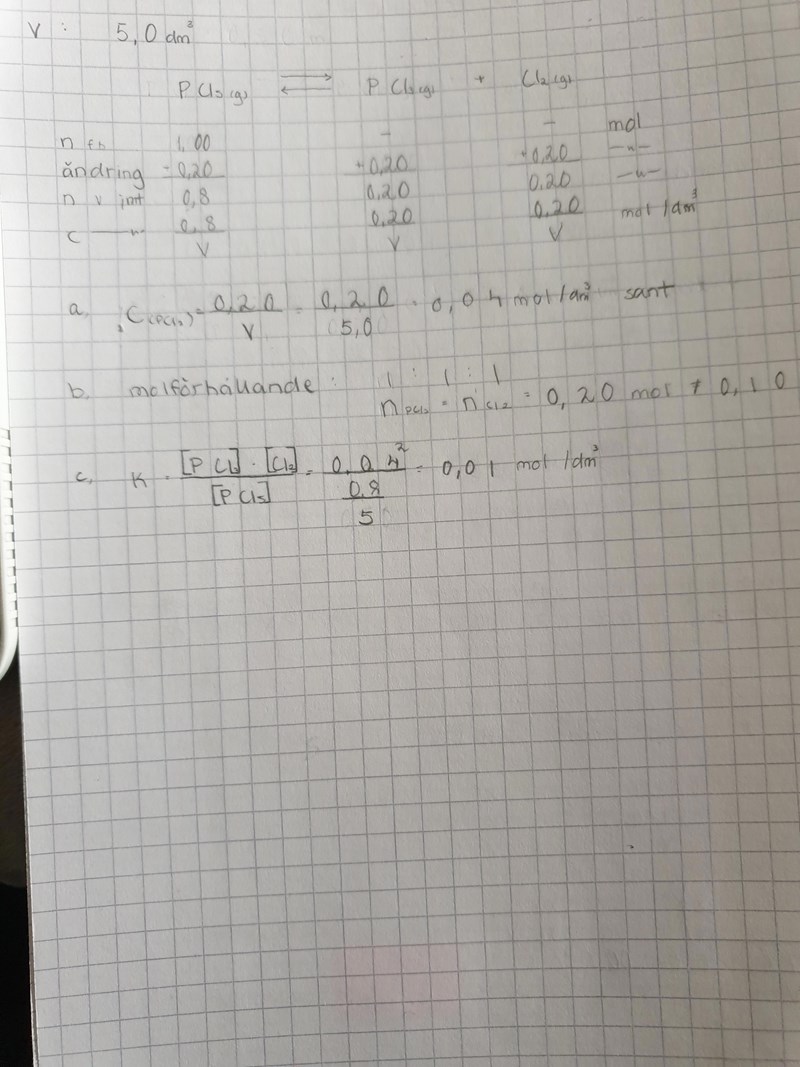 V : 5,0 dm³
PCl₅(g) ⇌ PCl₃(g) + Cl₂(g)
n fb 1,00 - - mol
ändring -0,20 +0,20 +0,20 -"-
n v jmt 0,8 0,20 0,20 -"-
c —"— 0,8/V 0,20/V 0,20/V mol/dm³
a. C(PCl₃) = 0,20/V = 0,20/5,0 = 0,04 mol/dm³ sant
b. molförhållande : 1 : 1 : 1
nPCl₃ = nCl₂ = 0,20 mol ≠ 0,10
c. K = [PCl₃]·[Cl₂]/[PCl₅] = 0,04²/(0,8/5) = 0,01 mol/dm³